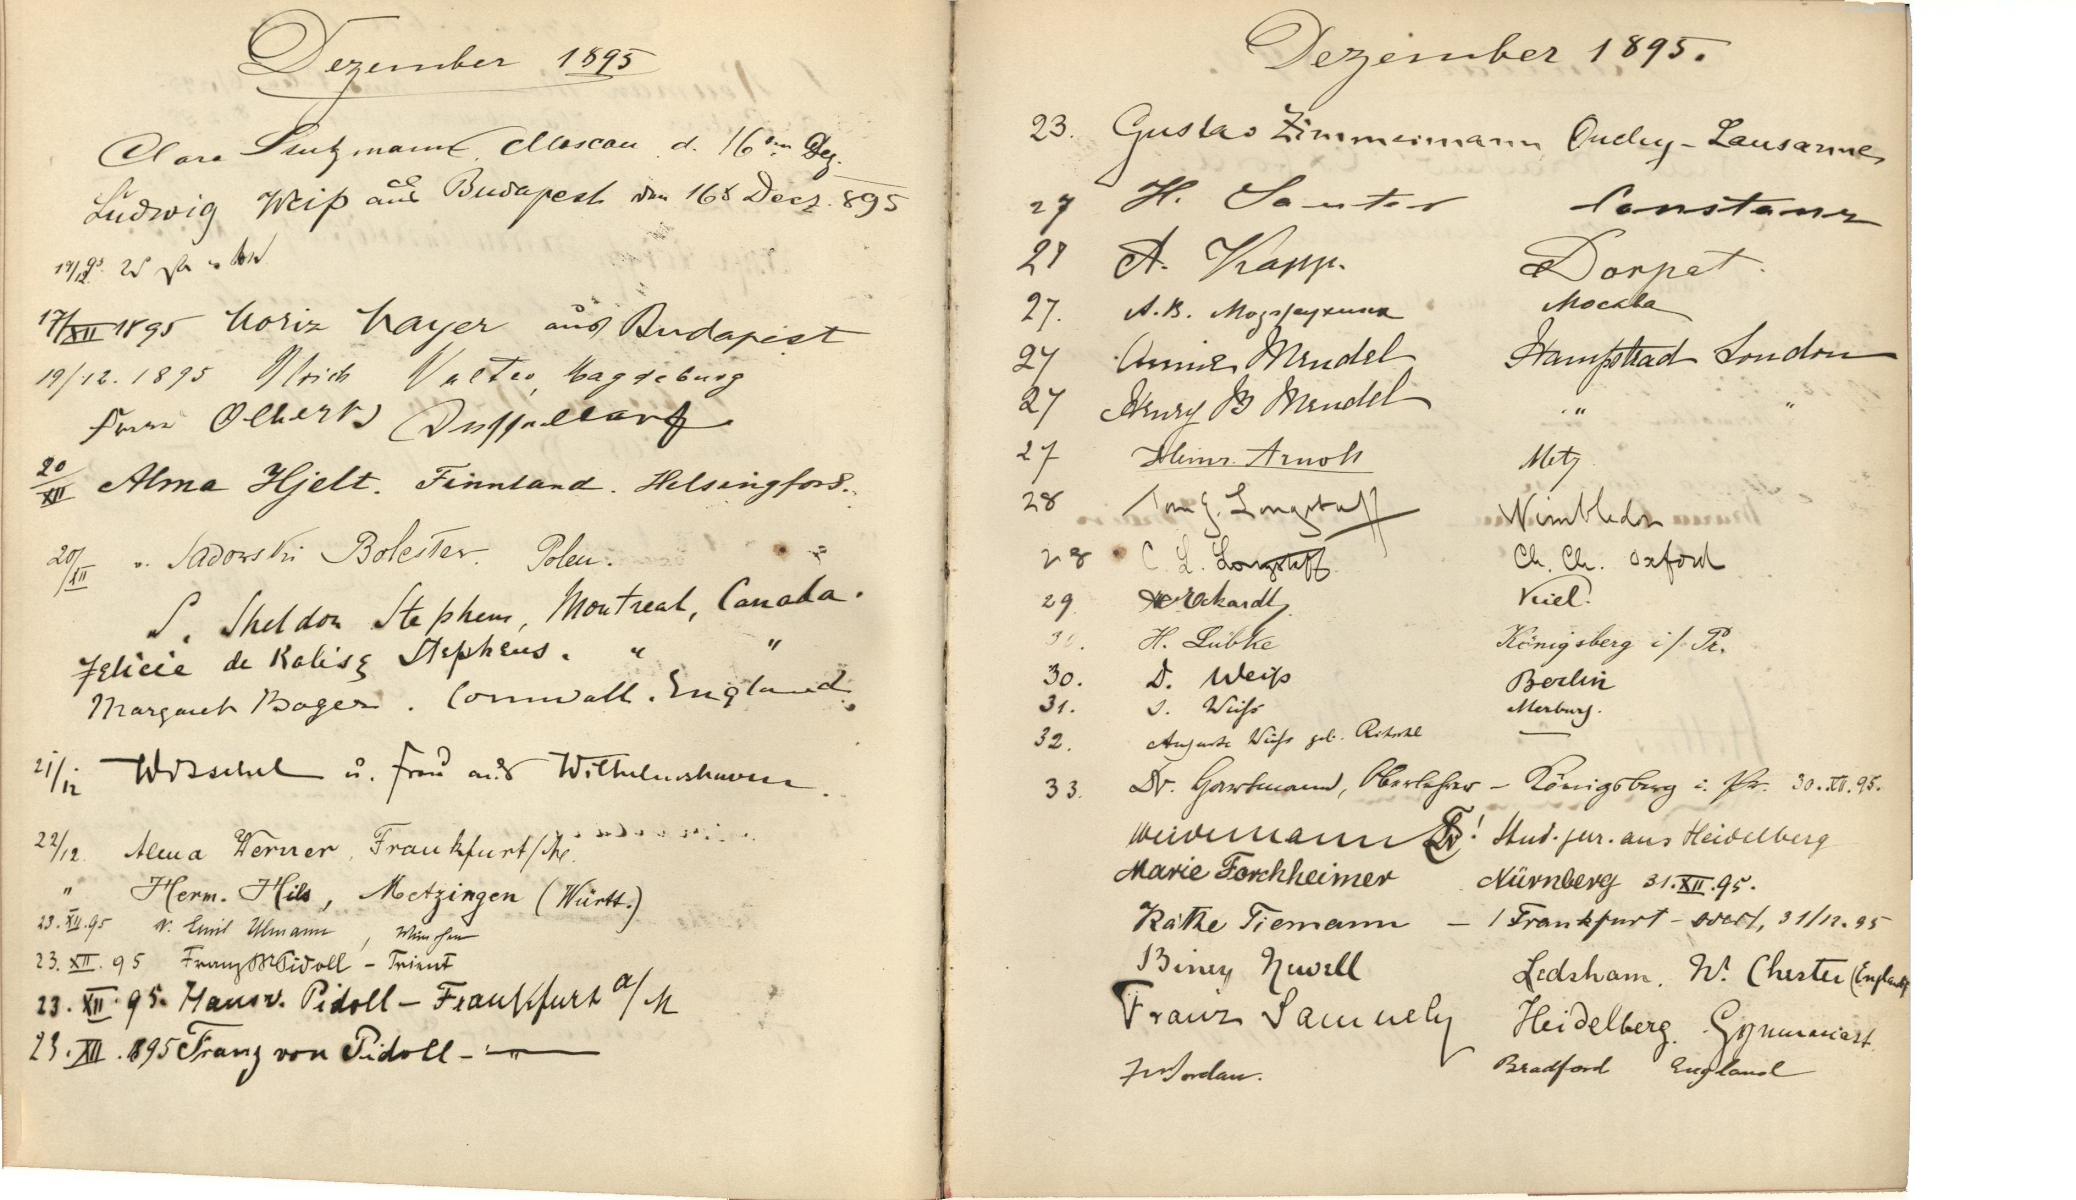 Dezember 1895
Clara Moscau d. 16ten Dez.
Ludwig Weiß aus Budapest den 16t Decz. 895
17/XII 1895 Moriz Mayer aus Budapest
19/12. 1895 Ulrich Magdeburg
Olbert Düsseldorf
20/XII Alma Hjelt. Finnland. Helsingfors.
20/XII v. Sadowski Bolester. Polen.
S. Sheldon Stephens, Montreal, Canada.
Felicie de Kalisz Stephens. " "
Margaret Boger. Cornwall. England.
21/12 Witschel u. Frau aus Wilhelmshaven.
22/12. Alma Werner, Frankfurt/M.
" Herm. Hils, Metzingen (Württ.)
23.XII.95 Dr. Emil Ulmann, München
23.XII.95 Franz Pidoll – Trient
23.XII.95. Hans v. Pidoll – Frankfurt a/M
23.XII.1895 Franz von Pidoll – " —
Dezember 1895.
23. Gustav Zimmermann Ouchy – Lausanne
27 H. Sauter Constanz
27 A. Kapp. Dorpat.
27. А. В. Москва
27 Annie Mendel Hampstead London
27 Henry B Mendel " "
27 Heinr. Arnoh Metz
28 Tom G. Longstaff Wimbledon
28 C. L. Longstaff Ch. Ch. Oxford
29 Eckardt Kiel.
30. H. Lübke Königsberg i/Pr.
30. D. Weiß Berlin
31. S. Weiß Merburg.
32. Auguste Weiß geb. —
33. Dr. Gortmann, Oberlehrer – Königsberg i. Pr. 30.XII.95.
Weidemann Stud. jur. aus Heidelberg
Marie Forchheimer Nürnberg 31.XII.95.
Käthe Tiemann – Frankfurt – 31/12.95
Biney Newell Ledsham. Nr. Chester (England)
Franz Samuely Heidelberg. Gymnasiast.
Jordan. Bradford England